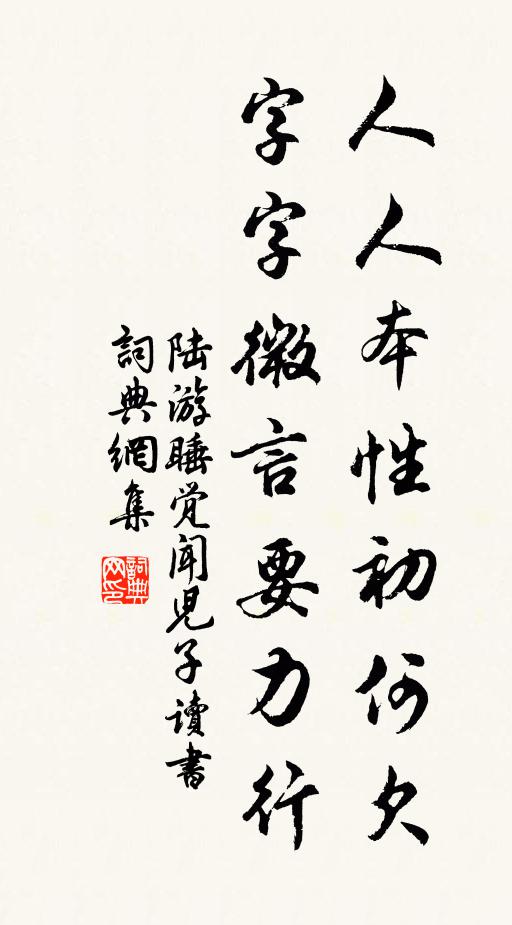 人人本性初何欠
字字微言要力行
陆游睡觉闻儿子讀書
詞典網集
詞典网印